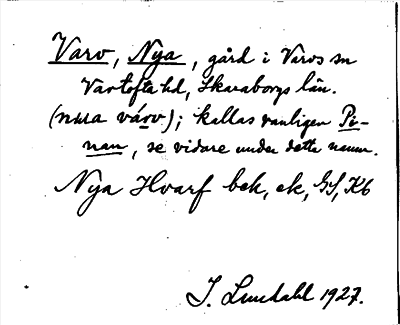 Varv, Nya, gård i Varvs sn
Vartofta hd, Skaraborgs län.
(nua várv); kallas vanligen Pi-
nan, se vidare under detta namn.
Nya Hvarf bek, ek, GS, Kb
J. Lundahl 1927.